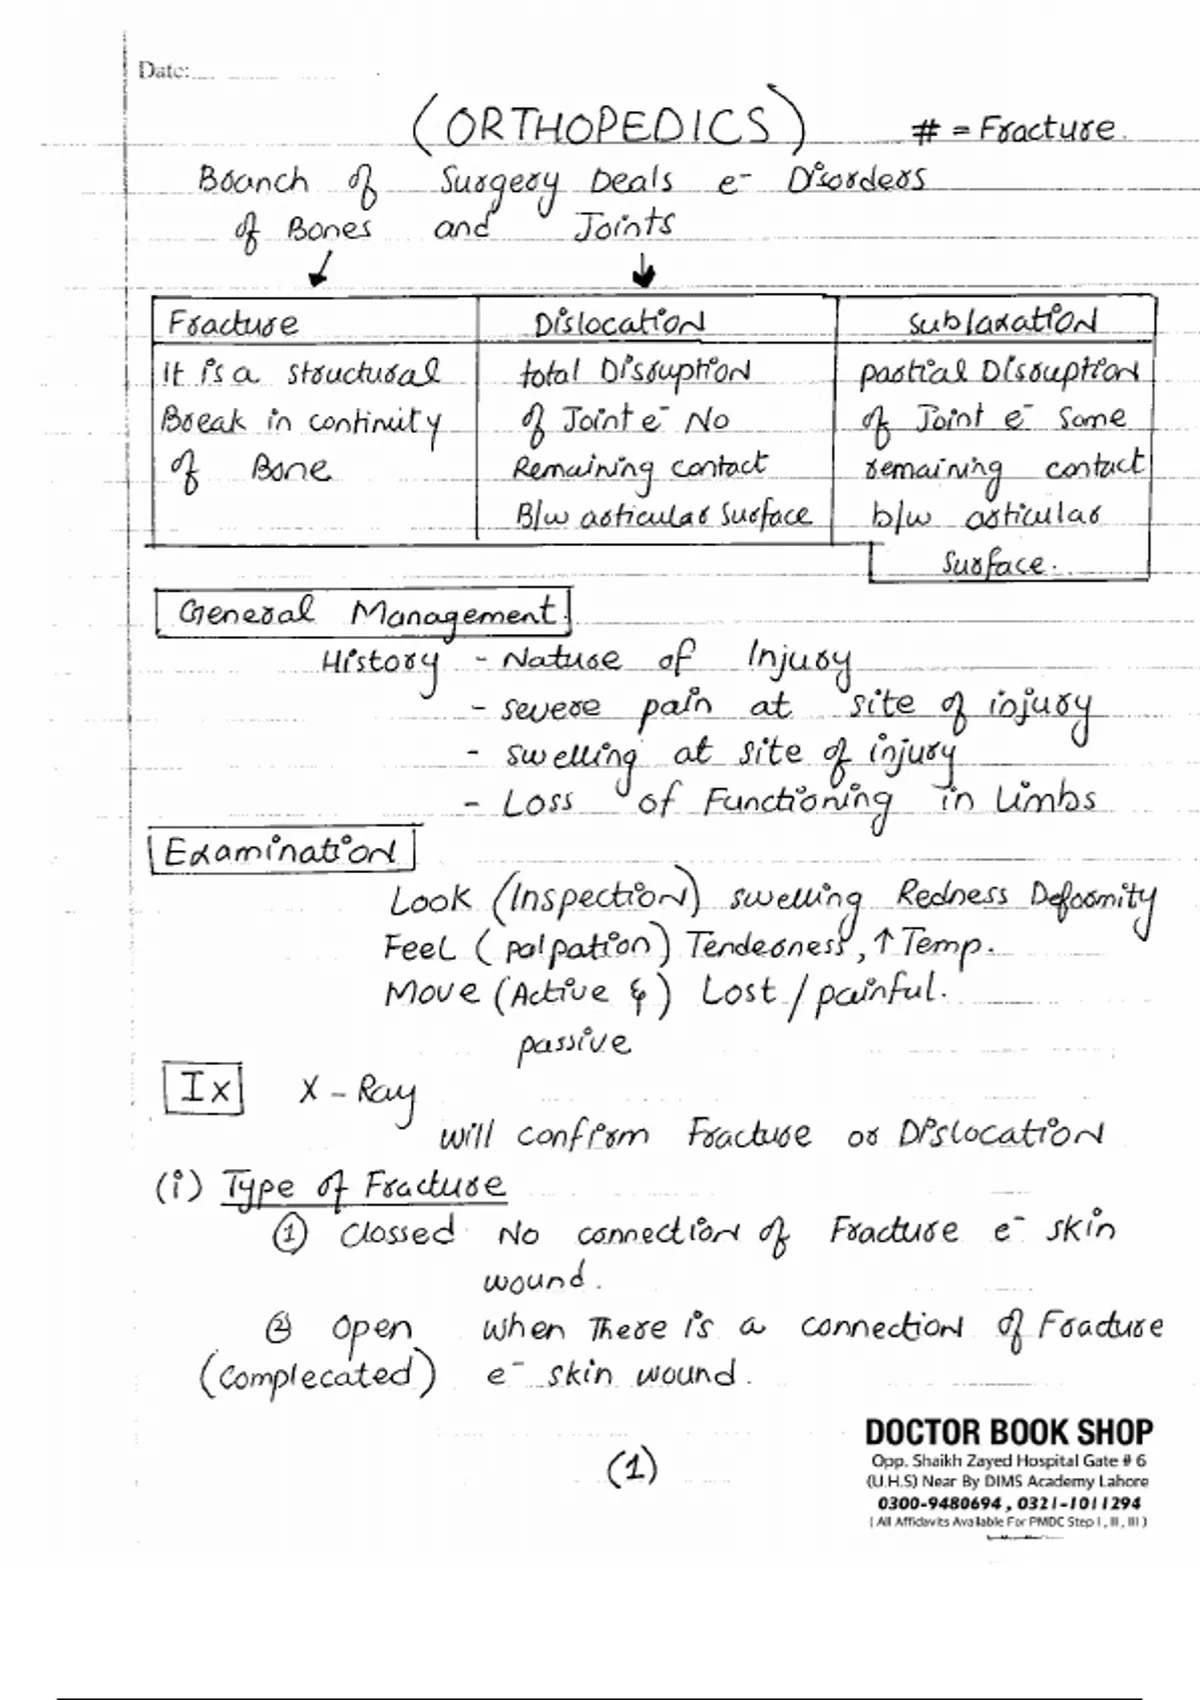 Date:
(ORTHOPEDICS) # = Fracture.
Branch of Surgery Deals e- Disorders
of Bones and Joints
Fracture Dislocation Sublaxation
It is a structural total Disruption partial Disruption
Break in continuity of Joint e- No of Joint e- Some
of Bone Remaining contact remaining contact
B/w articular Surface b/w articular
Surface.
General Management.
History - Nature of Injury
- severe pain at site of injury
- swelling at site of injury
- Loss of Functioning in Limbs
Examination
Look (Inspection) swelling Redness Deformity
Feel (palpation) Tenderness, ↑ Temp.
Move (Active & ) Lost / painful.
passive
Ix X-Ray
will confirm Fracture or Dislocation
(i) Type of Fracture
① Clossed No connection of Fracture e- skin
wound.
② Open when There is a connection of Fracture
(complecated) e- skin wound.
(1)
DOCTOR BOOK SHOP
Opp. Shaikh Zayed Hospital Gate # 6
(U.H.S) Near By DIMS Academy Lahore
0300-9480694, 0321-1011294
( All Affidavits Available For PMDC Step I, II, III )